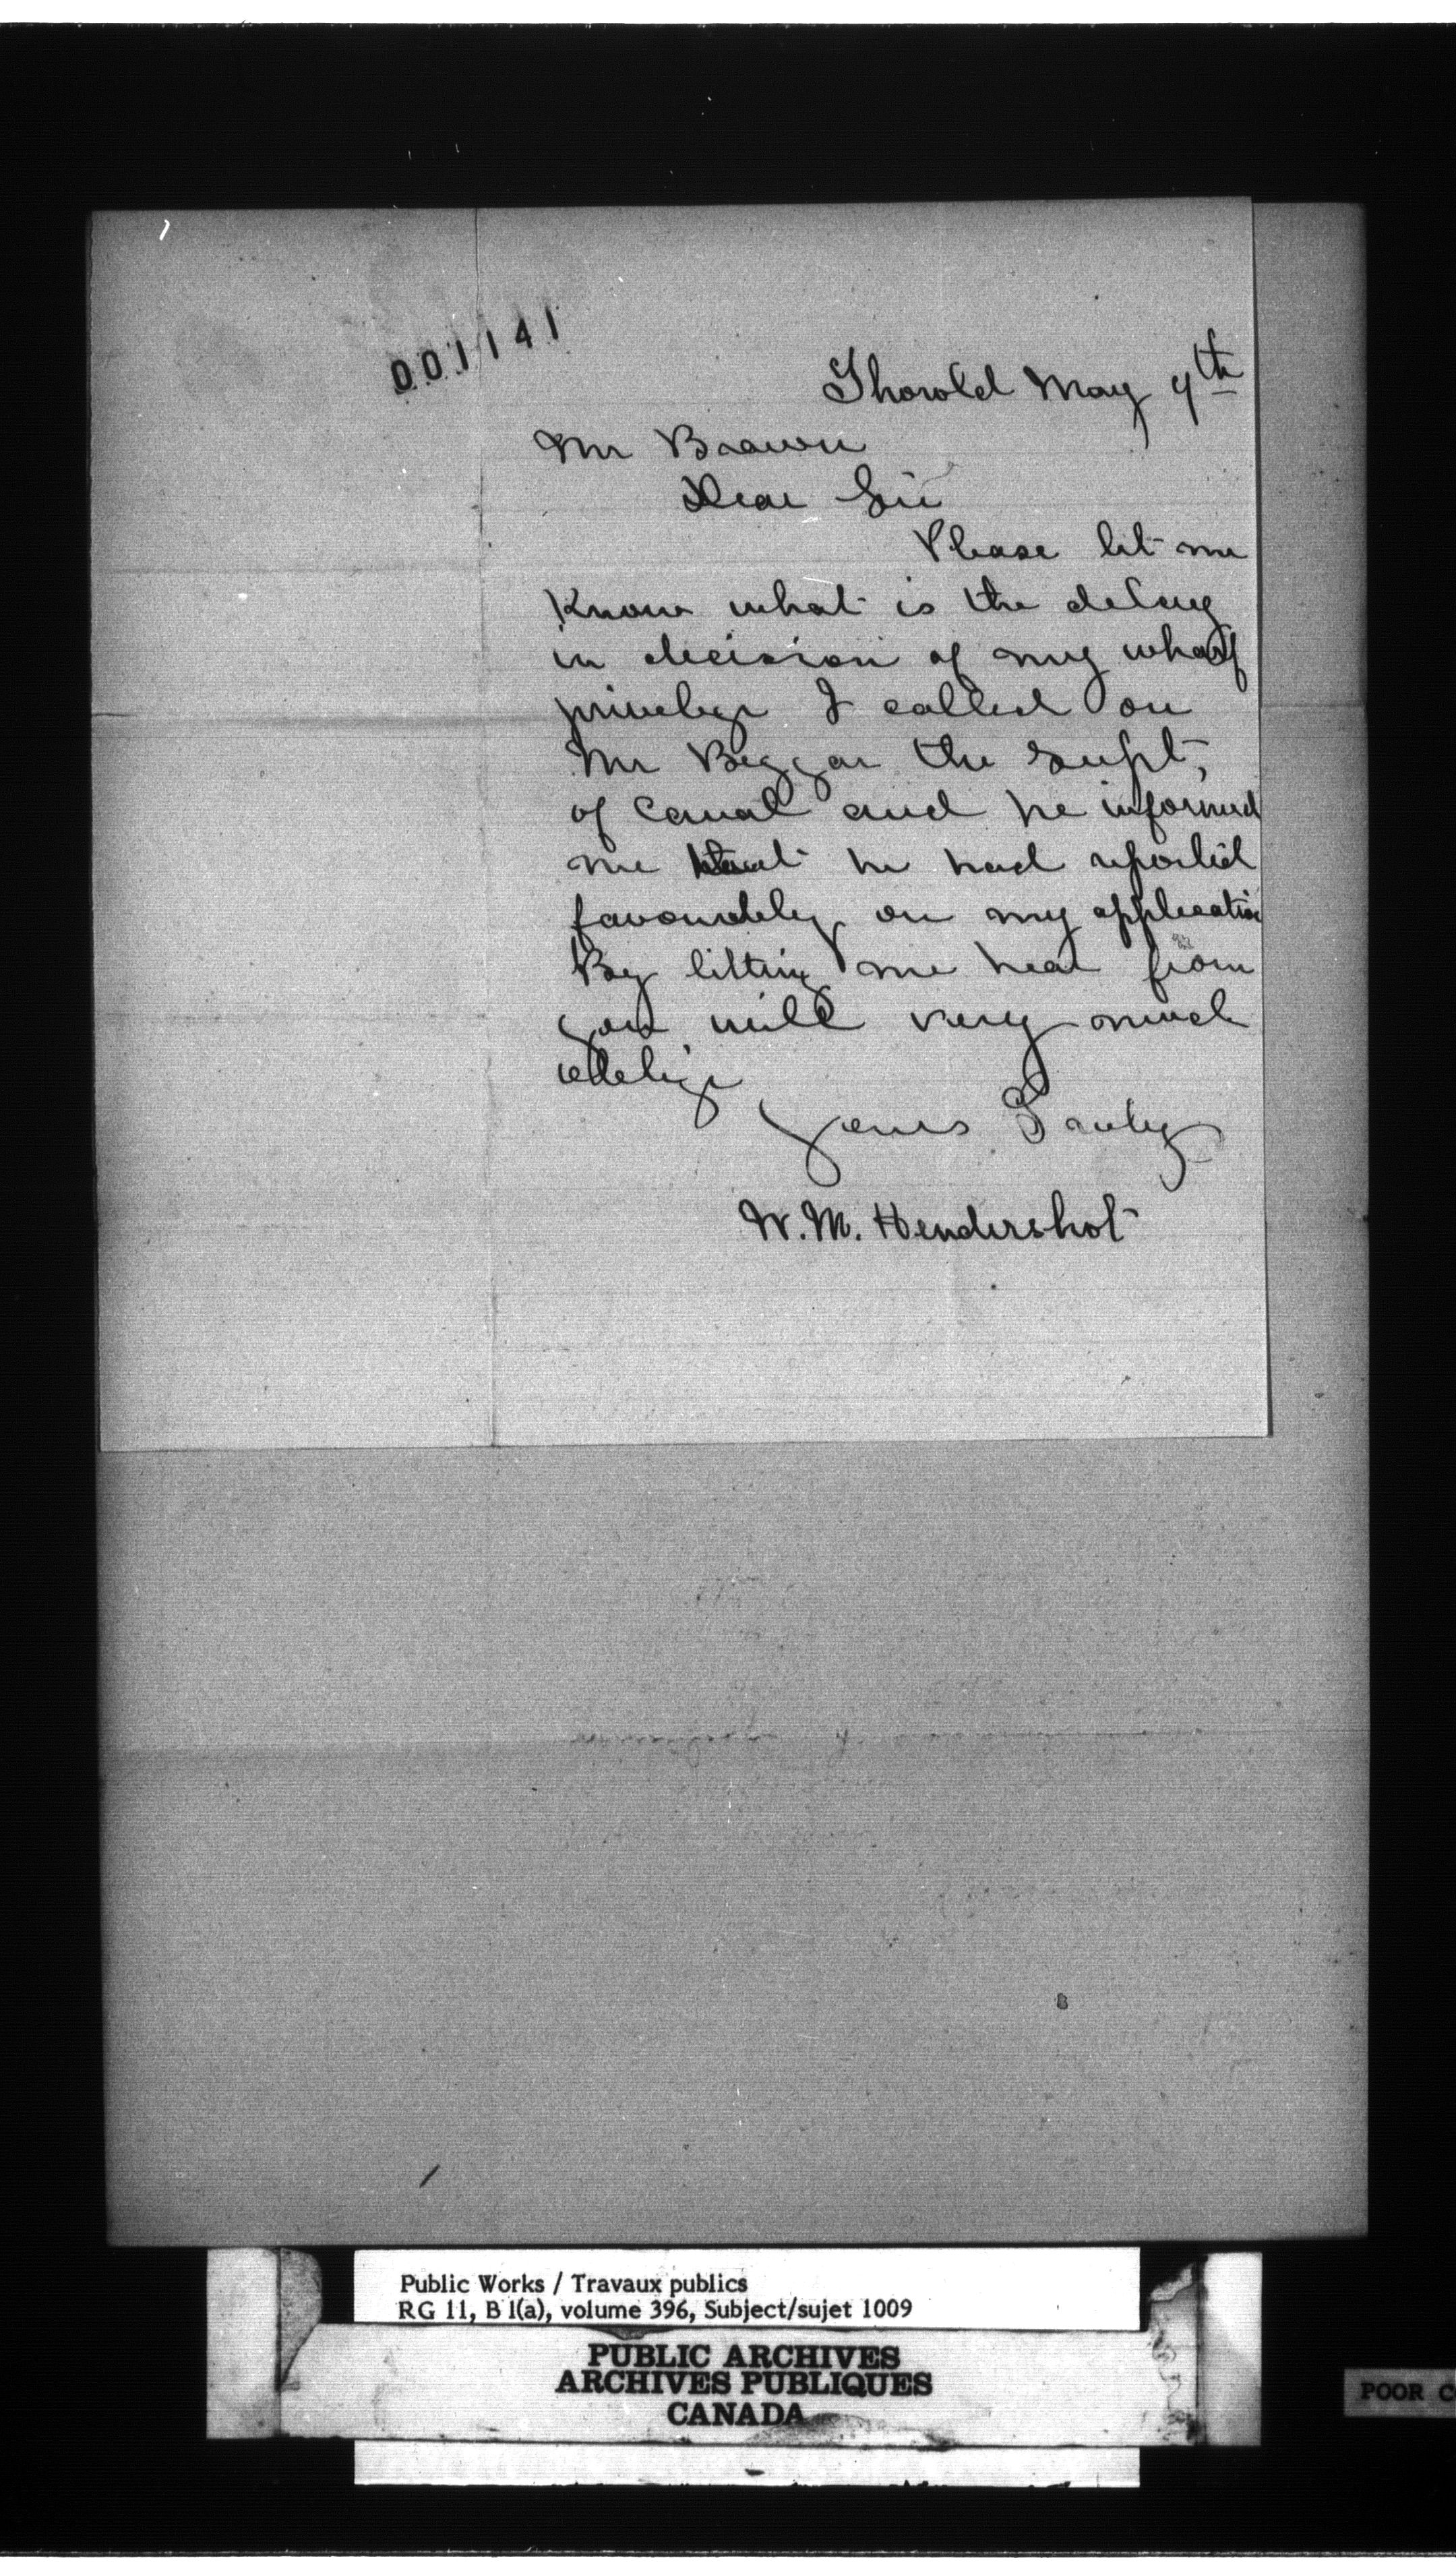 001141
Thorold May 9th
Mr Brown
Dear Sir
Please let me
know what is the delay
in decision of my wharf
privelege I called on
Mr Beggar the Supt,
of Canal and he informed
me that he had reported
favourably on my application
By letting me hear from
you will very much
oblige
Yours Truly
W. M. Hendershot
Public Works / Travaux publics
RG 11, B 1(a), volume 396, Subject/sujet 1009
PUBLIC ARCHIVES
ARCHIVES PUBLIQUES
CANADA
POOR C